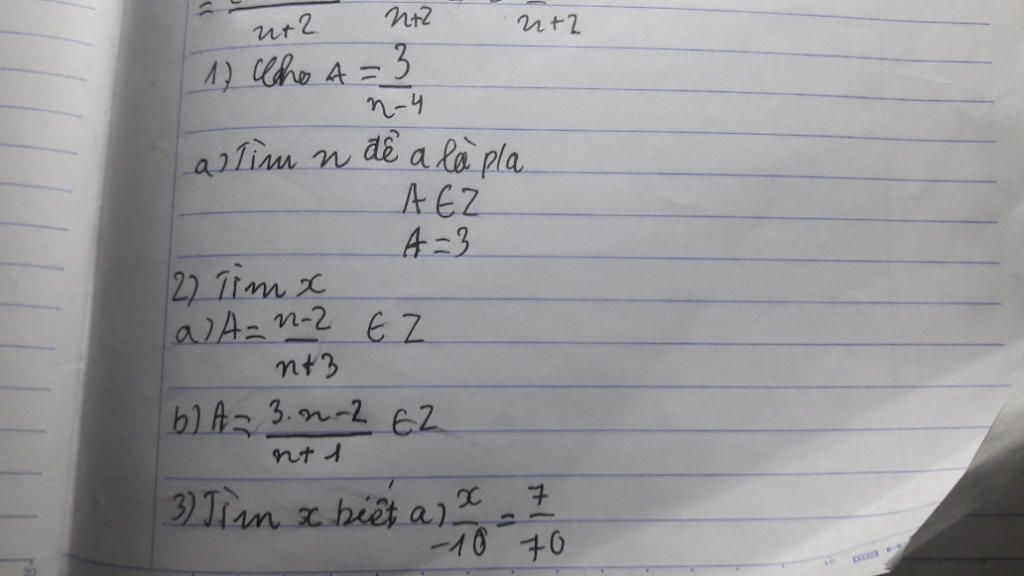 = n+2 n+2 n+2
1) Cho A = 3/n-4
a) Tìm n để a là p/a
A ∈ Z
A = 3
2) Tìm x
a) A = n-2/n+3 ∈ Z
b) A = 3.n-2/n+1 ∈ Z
3) Tìm x biết a) x/-10 = 7/70